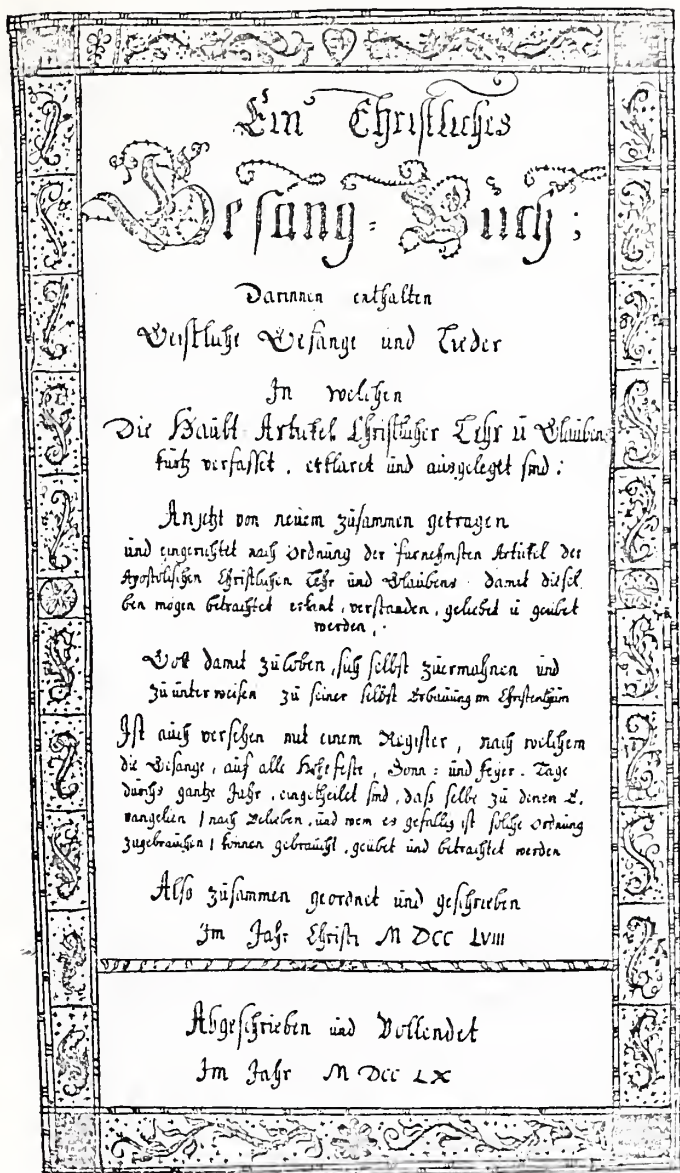 Ein Christliches
Gesäng = Büch ;
Darinnen enthalten
Geistliche Gesänge und Lieder
In welchen
Die Haübt Artickel Christlicher Lehr ü Glaübens
kürtz verfasset, erklaret ünd aüsgeleget sind:
Anjetzt von neüem züsammen getragen
ünd eingerichtet nach Ordnüng der fürnehmsten Artickel der
Apostolischen Christlichen Lehr ünd Glaübens damit diesel
ben mögen betrachtet erkant, verstanden, geliebet ü geübet
werden,
Gott damit zü loben, sich selbst züermahnen ünd
zü ünterweisen zü seiner selbst Erbaüüng im Christenthüm
Ist aüch versehen mit einem Register, nach welchem
die Gesänge, aüf alle hohe feste, Sonn= ünd feyer-Tage
dürchs gantze Jahr, eingetheilet sind, dass selbe zü denen E.
vangelien / nach Belieben, ünd wem es gefällig ist solche Ordnüng
zügebraüchen / können gebraücht, geübet ünd betrachtet werden
Also züsammen geordnet ünd geschrieben
Im Jahr Christi M DCC LVIII
Abgeschrieben ünd Vollendet
Im Jahr M DCC LX